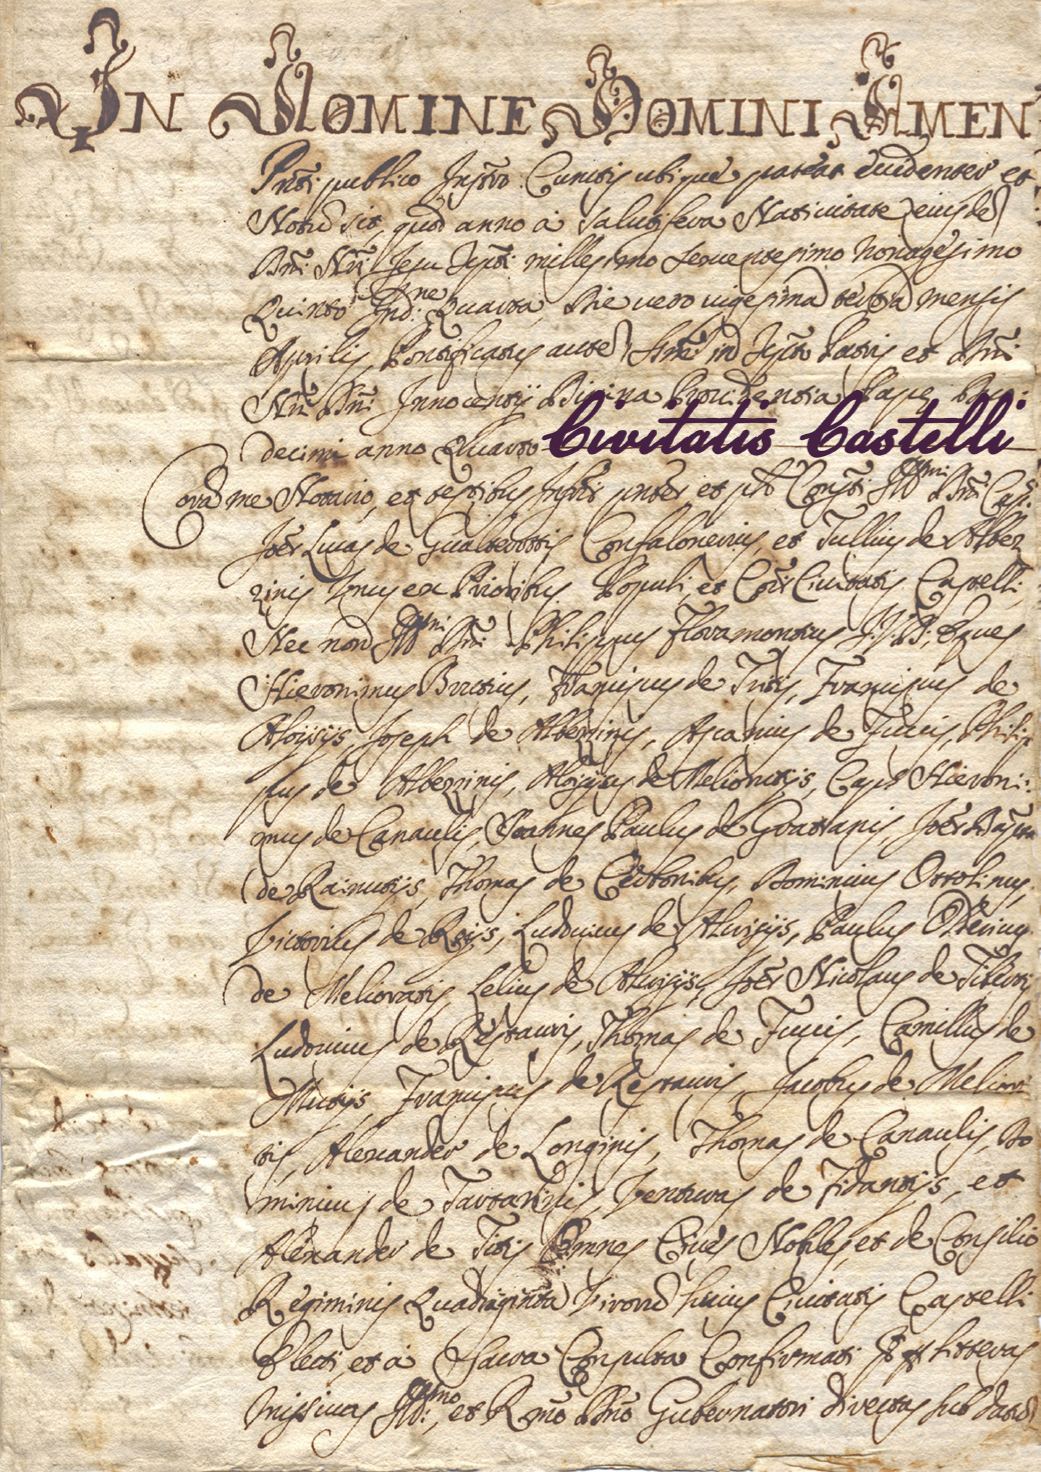 IN NOMINE DOMINI AMEN
Pnti publico Instro Cunctis ubique pateat evidenter et
Notu sit, quod anno à salutifera Nativitate eiusde
Dni Nri Iesu Xpti millesimo sexcentesimo nonagesimo
Quinto Indne Quarta, Die vero vigesima mensis
Aprilis, Pontificatus aute in Xpto Patris et Dni
Nri Dni Innocentij Divina Providentia Pape Duo:
decimi anno Quarto Civitatis Castelli
Cora me Notario, et testibus infris pnter et psolr Constti Illmi Dni Capi.
Ioes Lucas de Gualterottis Confalonerius, et Tullius de Alber
rinis Unus ex Prioribus Populi, et Cois Civitatis Castelli,
Nec non Illmi Dni Philippus Floramontius I.V.D. Eques
Hieronimus Brutius, Franciscus de Titis, Franciscus de
Aloysijs, Ioseph de Alberinis, Ascanius de Fuccis, Philip
pus de Alberinis, Aloysius de Melioratis, Capus Hieroni:
mus de Canaulis, Ioannes Paulus de Grattanis, Ioes Bapta
de Rainutijs, Thomas de Certonibus, Dominicus Ottolinus,
Victorius de Rogijs, Ludovicus de Alvisijs, Paulus Odericus
de Melioratis, Lelius de Alvisijs, Ioes Nicolaus de
Ludovicus de Restauris, Thomas de Fuccis, Camillus de
Mutijs, Franciscus de Restauris, Iacobus de Meliora
tis, Alexander de Longinis, Thomas de Canaulis, Do
minicus de Tartarinis, Ventura de Fidantijs, et
Alexander de Titis Omnes Cives Nobiles, et de Consilio
Regiminis Quadraginta Virorum huius Civitatis Castelli
Electi, et à Sacra Consulta Confirmati litteras
missivas Illmo, et Rmo Dno Gubernatori directas sub data